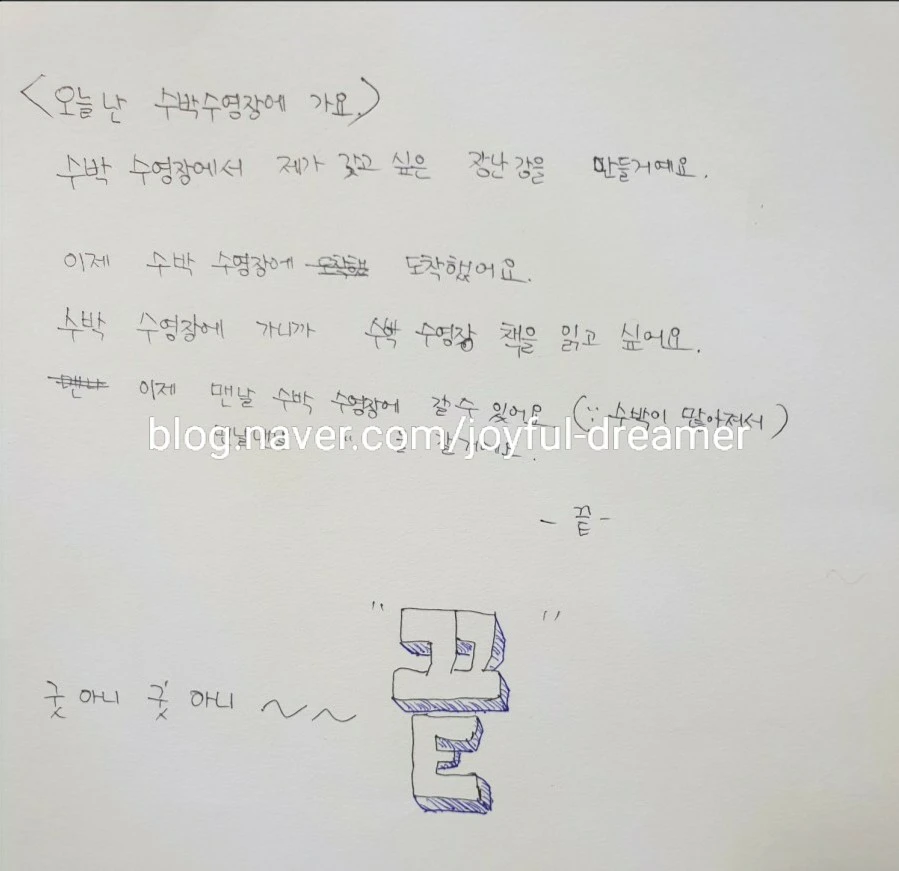 <오늘 난 수박수영장에 가요.>
수박 수영장에서 제가 갖고 싶은 장난감을 만들거예요.
이제 수박 수영장에 도착했 도착했어요.
수박 수영장에 가니까 수박 수영장 책을 읽고 싶어요.
맨나 이제 맨날 수박 수영장에 갈 수 있어요 (∵ 수박이 많아져서)
blog.naver.com/joyful-dreamer
- 끝 -
굿 아니 굿 아니 ~~ " 끝 "